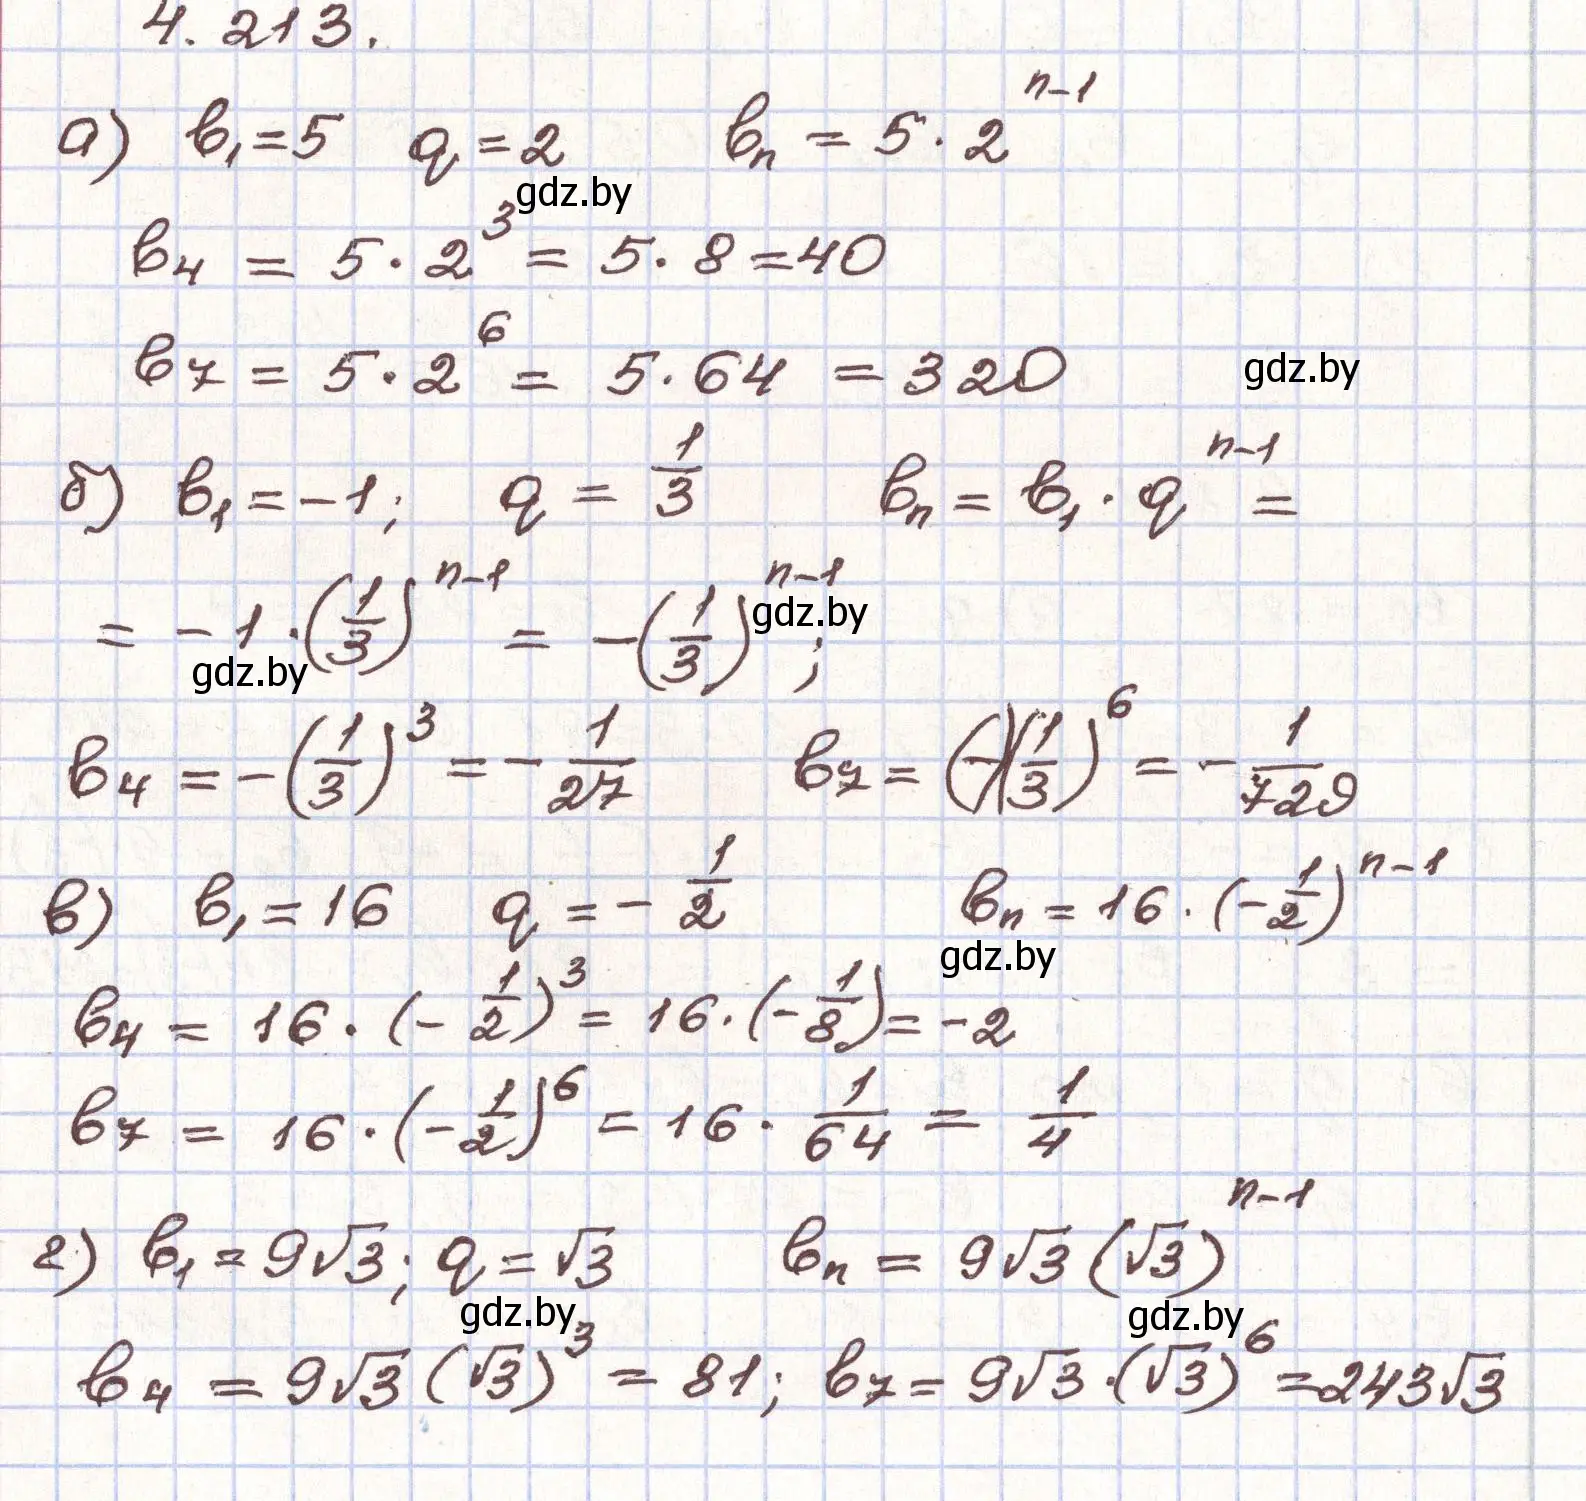 4.213.
а) b₁ = 5 q = 2 bₙ = 5 · 2ⁿ⁻¹
gdz.by
b₄ = 5 · 2³ = 5 · 8 = 40
b₇ = 5 · 2⁶ = 5 · 64 = 320 gdz.by
б) b₁ = -1; q = 1/3 bₙ = b₁ · qⁿ⁻¹ =
= -1 · (1/3)ⁿ⁻¹ = -(1/3)ⁿ⁻¹ ;
gdz.by gdz.by
b₄ = -(1/3)³ = - 1/27 b₇ = (-)(1/3)⁶ = - 1/729
в) b₁ = 16 q = - 1/2 bₙ = 16 · (- 1/2)ⁿ⁻¹
gdz.by
b₄ = 16 · (- 1/2)³ = 16 · (- 1/8) = -2
b₇ = 16 · (- 1/2)⁶ = 16 · 1/64 = 1/4
г) b₁ = 9√3; q = √3 bₙ = 9√3 (√3)ⁿ⁻¹
gdz.by gdz.by
b₄ = 9√3 (√3)³ = 81; b₇ = 9√3 · (√3)⁶ = 243√3